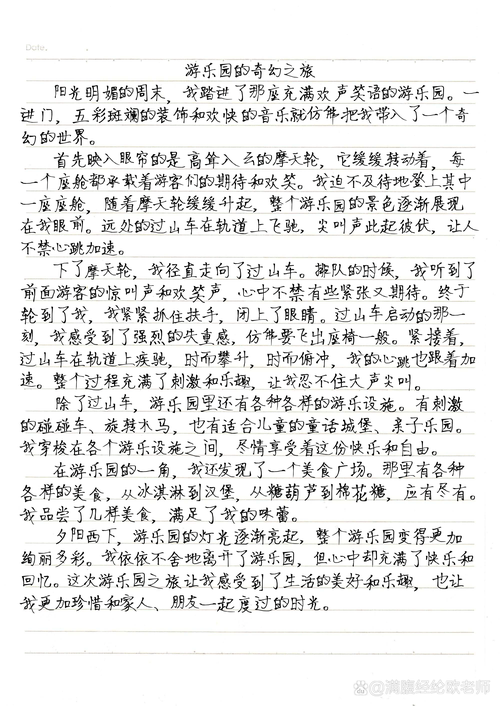 Date.
游乐园的奇幻之旅
阳光明媚的周末，我踏进了那座充满欢声笑语的游乐园。一
进门，五彩斑斓的装饰和欢快的音乐就仿佛把我带入了一个奇
幻的世界。
首先映入眼帘的是高耸入云的摩天轮，它缓缓转动着，每
一个座舱都承载着游客们的期待和欢笑。我迫不及待地登上其中
一座座舱，随着摩天轮缓缓升起，整个游乐园的景色逐渐展现
在我眼前。远处的过山车在轨道上飞驰，尖叫声此起彼伏，让人
不禁心跳加速。
下了摩天轮，我径直走向了过山车。排队的时候，我听到了
前面游客的惊叫声和欢笑声，心中不禁有些紧张又期待。终于
轮到了我，我紧紧抓住扶手，闭上了眼睛。过山车启动的那一
刻，我感受到了强烈的失重感，仿佛要飞出座椅一般。紧接着，
过山车在轨道上疾驰，时而攀升，时而俯冲，我的心跳也跟着加
速。整个过程充满了刺激和乐趣，让我忍不住大声尖叫。
除了过山车，游乐园里还有各种各样的游乐设施。有刺激
的碰碰车、旋转木马，也有适合儿童的童话城堡、亲子乐园。
我穿梭在各个游乐设施之间，尽情享受着这份快乐和自由。
在游乐园的一角，我还发现了一个美食广场。那里有各种
各样的美食，从冰淇淋到汉堡，从糖葫芦到棉花糖，应有尽有。
我品尝了几样美食，满足了我的味蕾。
夕阳西下，游乐园的灯光逐渐亮起，整个游乐园变得更加
绚丽多彩。我依依不舍地离开了游乐园，但心中却充满了快乐和
回忆。这次游乐园之旅让我感受到了生活的美好和乐趣，也让
我更加珍惜和家人、朋友一起度过的时光。
@满腹经纶欧老师